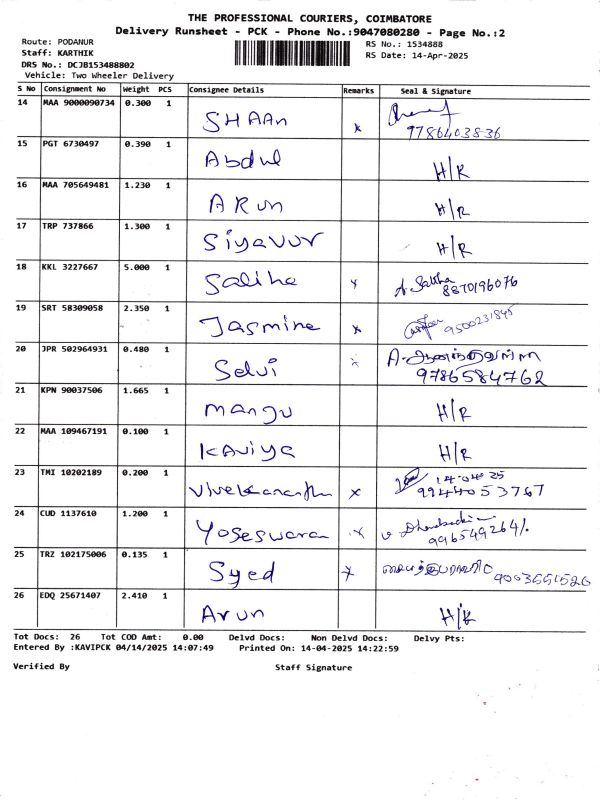 THE PROFESSIONAL COURIERS, COIMBATORE
Delivery Runsheet - PCK - Phone No.:9047080280 - Page No.:2
Route: PODANUR
RS No.: 1534888
Staff: KARTHIK
RS Date: 14-Apr-2025
DRS No.: DCJB153488802
Vehicle: Two Wheeler Delivery
S No Consignment No Weight PCS Consignee Details Remarks Seal & Signature
14 MAA 9000090734 0.300 1 SHAAn x
9786403836
15 PGT 6730497 0.390 1 Abdul H/R
16 MAA 705649481 1.230 1 ARun H/R
17 TRP 737866 1.300 1 Siyavur H/R
18 KKL 3227667 5.000 1 Saliha x A. Saliha
8870196076
19 SRT 58309058 2.350 1 Jasmine x
9500231845
20 JPR 502964931 0.480 1 Selvi x
9786584762
21 KPN 90037506 1.665 1 mangu H/R
22 MAA 109467191 0.100 1 KAviya H/R
23 TMI 10202189 0.200 1 Vivekananthan x 14-04-25
9944053767
24 CUD 1137610 1.200 1 Yoseswaran x
25 TRZ 102175006 0.135 1 Syed x
9003551526
26 EDQ 25671407 2.410 1 Arun H/R
Tot Docs: 26 Tot COD Amt: 0.00 Delvd Docs: Non Delvd Docs: Delvy Pts:
Entered By :KAVIPCK 04/14/2025 14:07:49 Printed On: 14-04-2025 14:22:59
Verified By Staff Signature